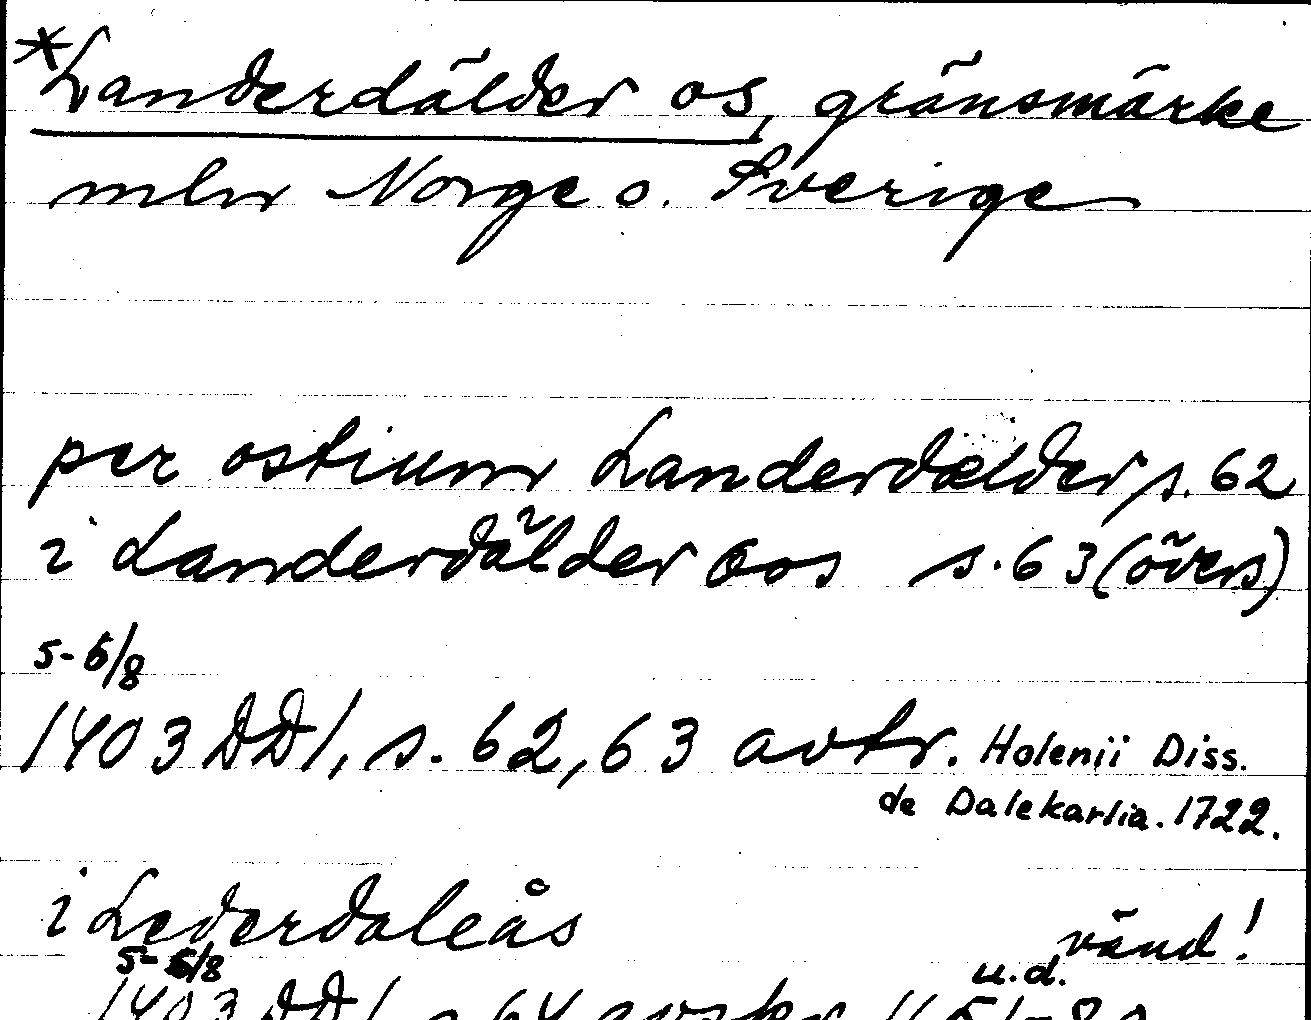 *Landerdälder os, gränsmärke
mln Norge o. Sverige
per ostium Landerdælder s. 62
i Landerdälder Oos s. 63 (övers)
5-6/8
1403 DD1, s. 62, 63 avtr. Holenii Diss.
de Dalekarlia. 1722.
i Lederdaleås
vänd!
5-6/8 u.d.
1403 DD1 s 64 avskr